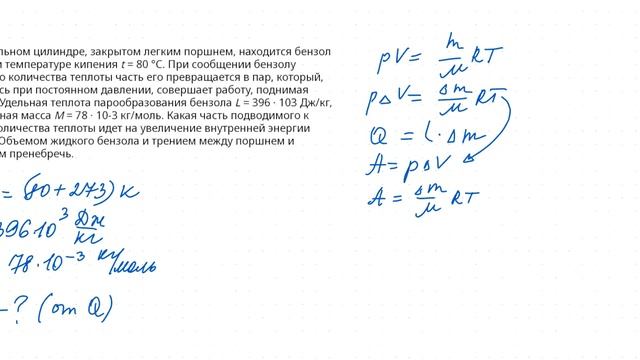 льном цилиндре, закрытом легким поршнем, находится бензол
и температуре кипения t = 80 °С. При сообщении бензолу
о количества теплоты часть его превращается в пар, который,
сь при постоянном давлении, совершает работу, поднимая
Удельная теплота парообразования бензола L = 396 · 103 Дж/кг,
ная масса M = 78 · 10-3 кг/моль. Какая часть подводимого к
оличества теплоты идет на увеличение внутренней энергии
Объемом жидкого бензола и трением между поршнем и
м пренебречь.
= (80+273) К
396 10³ Дж/кг
78·10⁻³ кг/моль
-? (от Q)
pV = m/M RT
pΔV = Δm/M RT
Q = L·Δm
A = pΔV
A = Δm/M RT